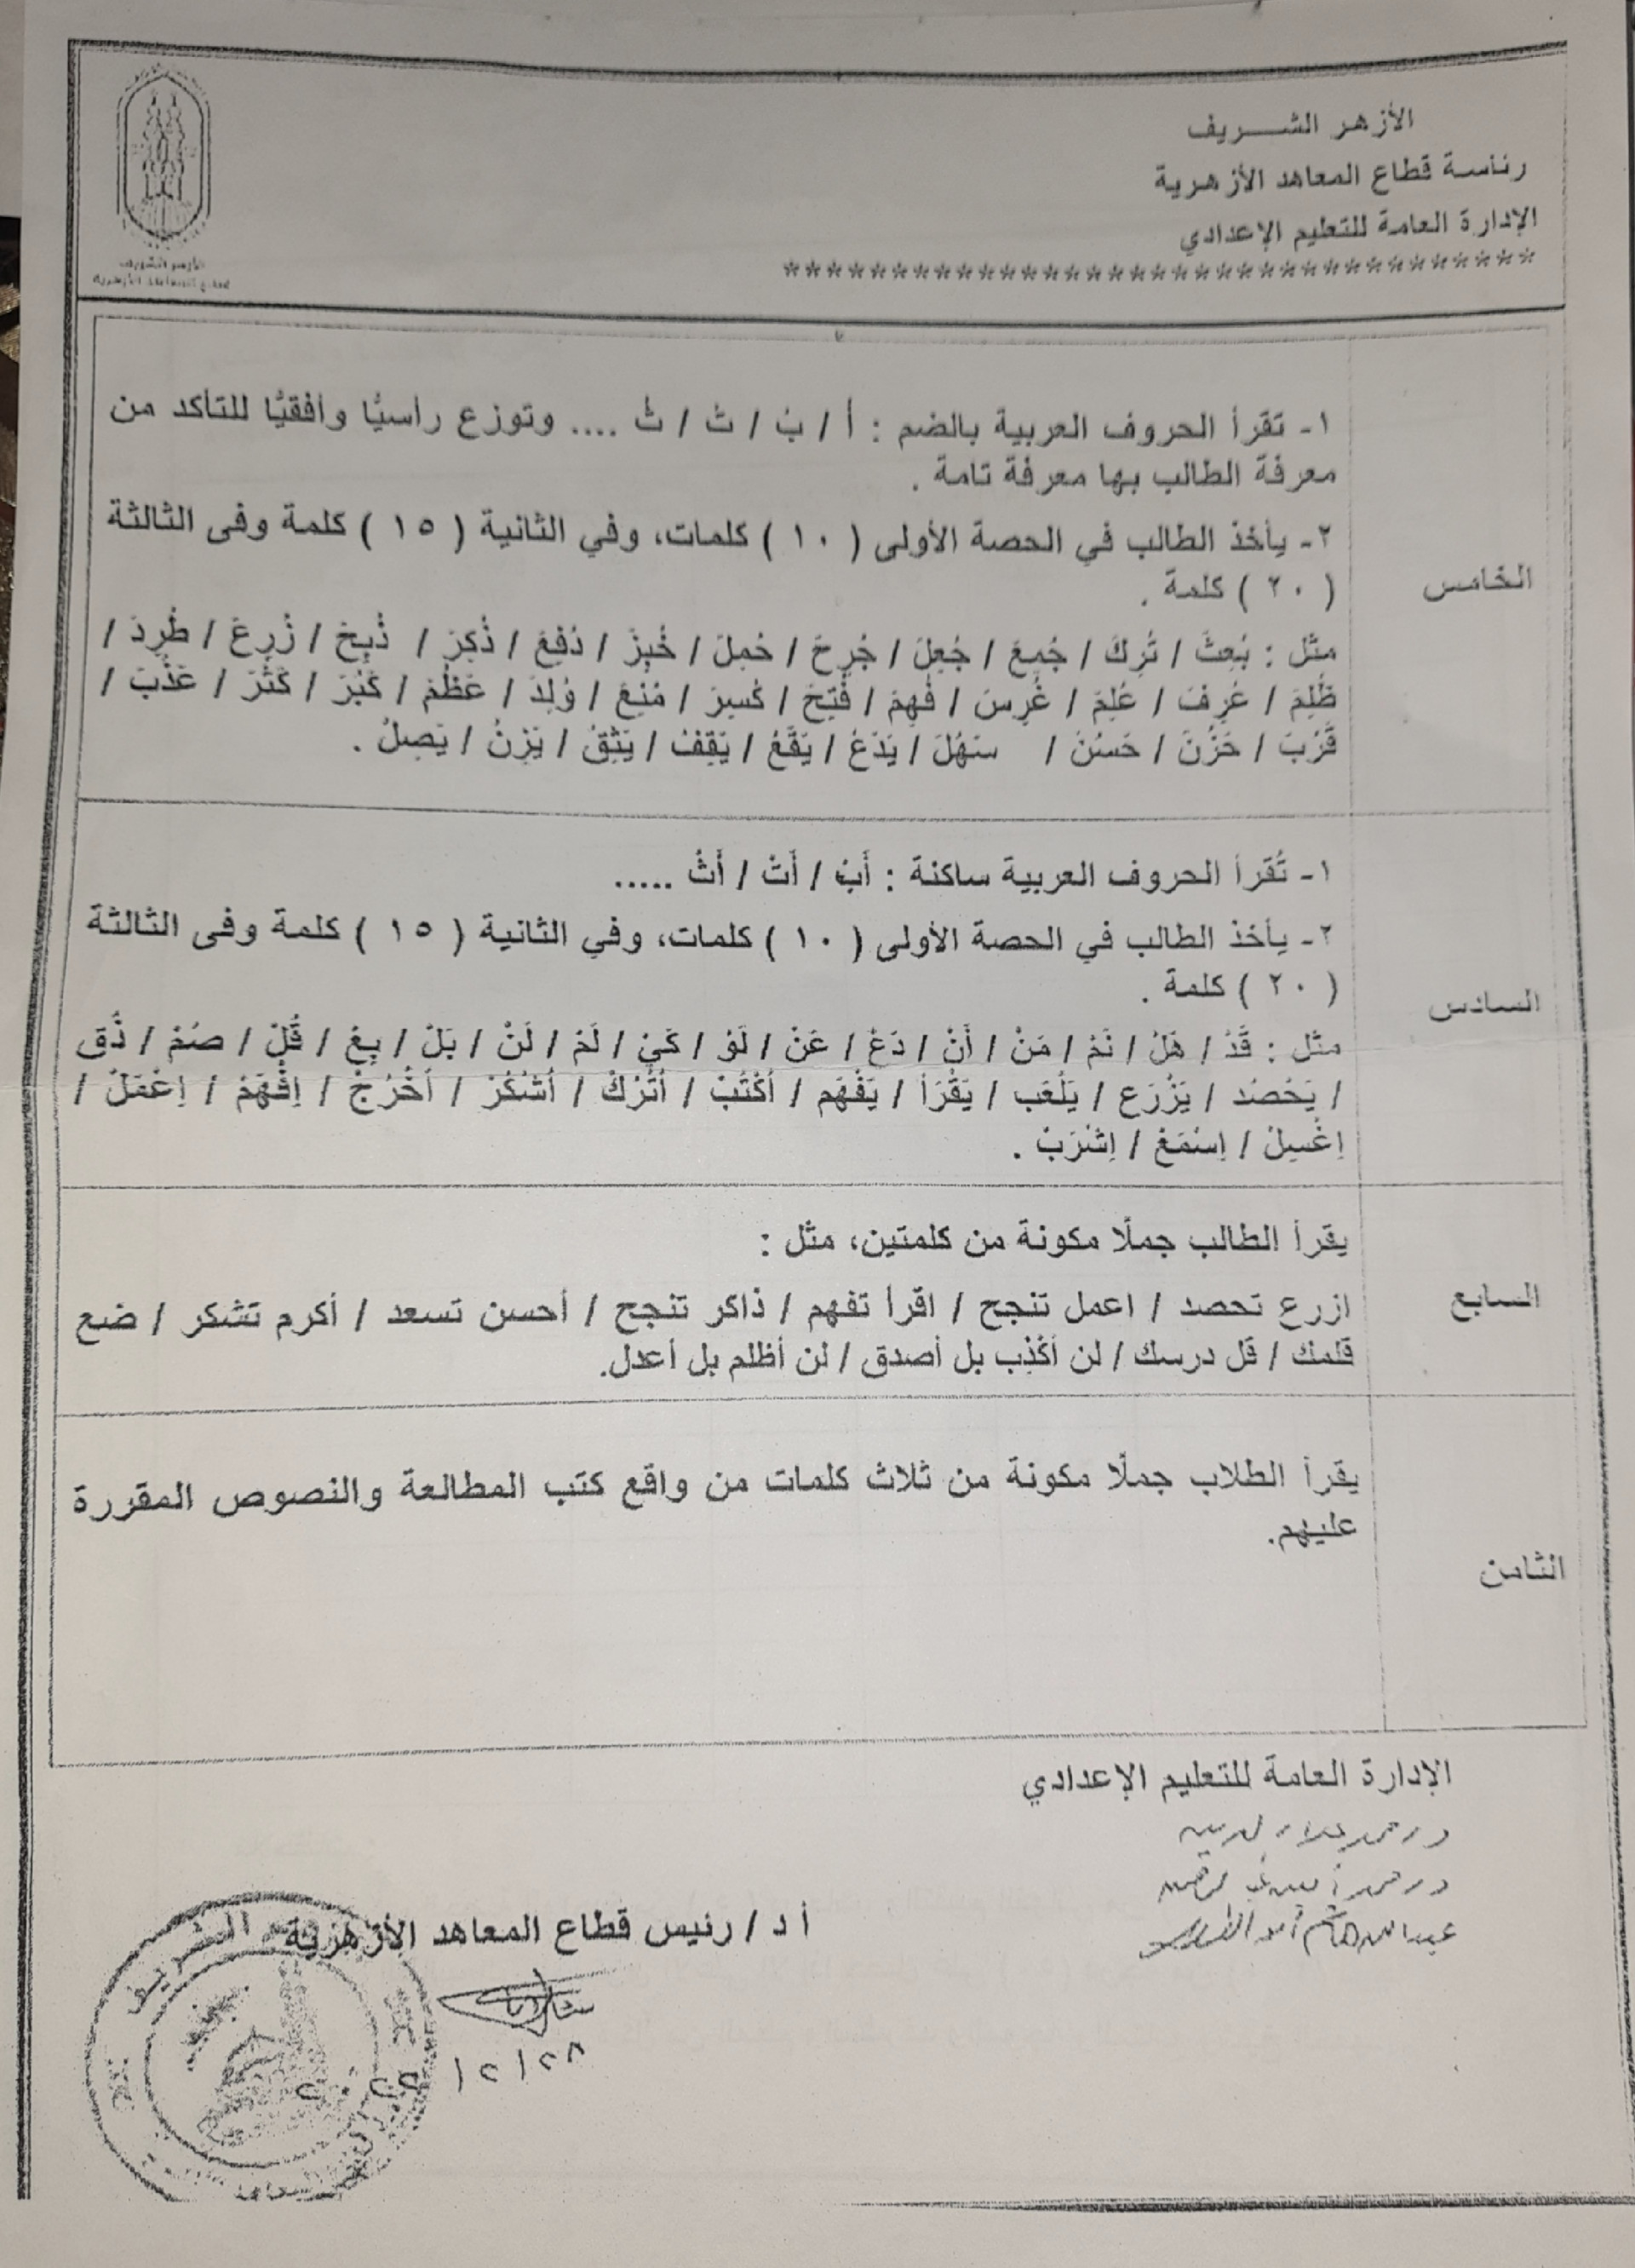 الأزهر الشـــريف
رئاسة قطاع المعاهد الأزهرية
الإدارة العامة للتعليم الإعدادي
***********************************
الأزهر الشريف
قطاع المعاهد الأزهرية
١- تقرأ الحروف العربية بالضم : أُ / بُ / تُ / ثُ .... وتوزع رأسيًّا وأفقيًّا للتأكد من
معرفة الطالب بها معرفة تامة .
٢- يأخذ الطالب في الحصة الأولى ( ١٠ ) كلمات، وفي الثانية ( ١٥ ) كلمة وفى الثالثة
( ٢٠ ) كلمة .
الخامس
مثل : بُعِثَ / تُرِكَ / جُمِعَ / جُعِلَ / جُرِحَ / حُمِلَ / خُبِزَ / دُفِعَ / ذُكِرَ / ذُبِحَ / زُرِعَ / طُرِدَ /
ظُلِمَ / عُرِفَ / عُلِمَ / غُرِسَ / فُهِمَ / فُتِحَ / كُسِرَ / مُنِعَ / وُلِدَ / عَظُمَ / كَبُرَ / كَثُرَ / عَذُبَ /
قَرُبَ / حَزُنَ / حَسُنَ / سَهُلَ / يَدَعُ / يَقَعُ / يَقِفُ / يَثِقُ / يَزِنُ / يَصِلُ .
١- تُقرأ الحروف العربية ساكنة : أَبْ / أَتْ / أَثْ .....
٢- يأخذ الطالب في الحصة الأولى ( ١٠ ) كلمات، وفي الثانية ( ١٥ ) كلمة وفى الثالثة
( ٢٠ ) كلمة .
السادس
مثل : قَدْ / هَلْ / نَمْ / مَنْ / أَنْ / دَعْ / عَنْ / لَوْ / كَيْ / لَمْ / لَنْ / بَلْ / بِعْ / قُلْ / صُمْ / ذُق
/ يَحْصُد / يَزْرَع / يَلْعَب / يَقْرَأ / يَفْهَم / اُكْتُبْ / اُتْرُكْ / اُشْكُرْ / اُخْرُجْ / اِفْهَمْ / اِعْمَلْ /
اِغْسِلْ / اِسْمَعْ / اِشْرَبْ .
يقرأ الطالب جملًا مكونة من كلمتين، مثل :
السابع
ازرع تحصد / اعمل تنجح / اقرأ تفهم / ذاكر تنجح / أحسن تسعد / أكرم تشكر / ضع
قلمك / قل درسك / لن أكْذِب بل أصدق / لن أظلم بل أعدل.
يقرأ الطلاب جملًا مكونة من ثلاث كلمات من واقع كتب المطالعة والنصوص المقررة
عليهم.
الثامن
الإدارة العامة للتعليم الإعدادي
أ د / رئيس قطاع المعاهد الأزهرية
الشريف